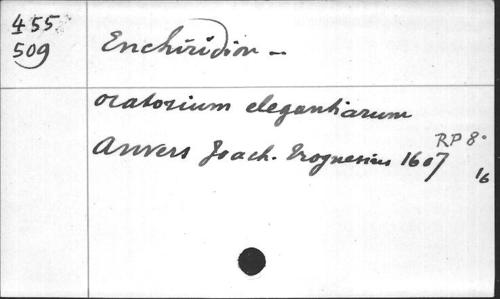 455
509
Enchiridion --
oratorium elegantiarum
Anvers Joach. Trognesius 1607
RP 8°
16